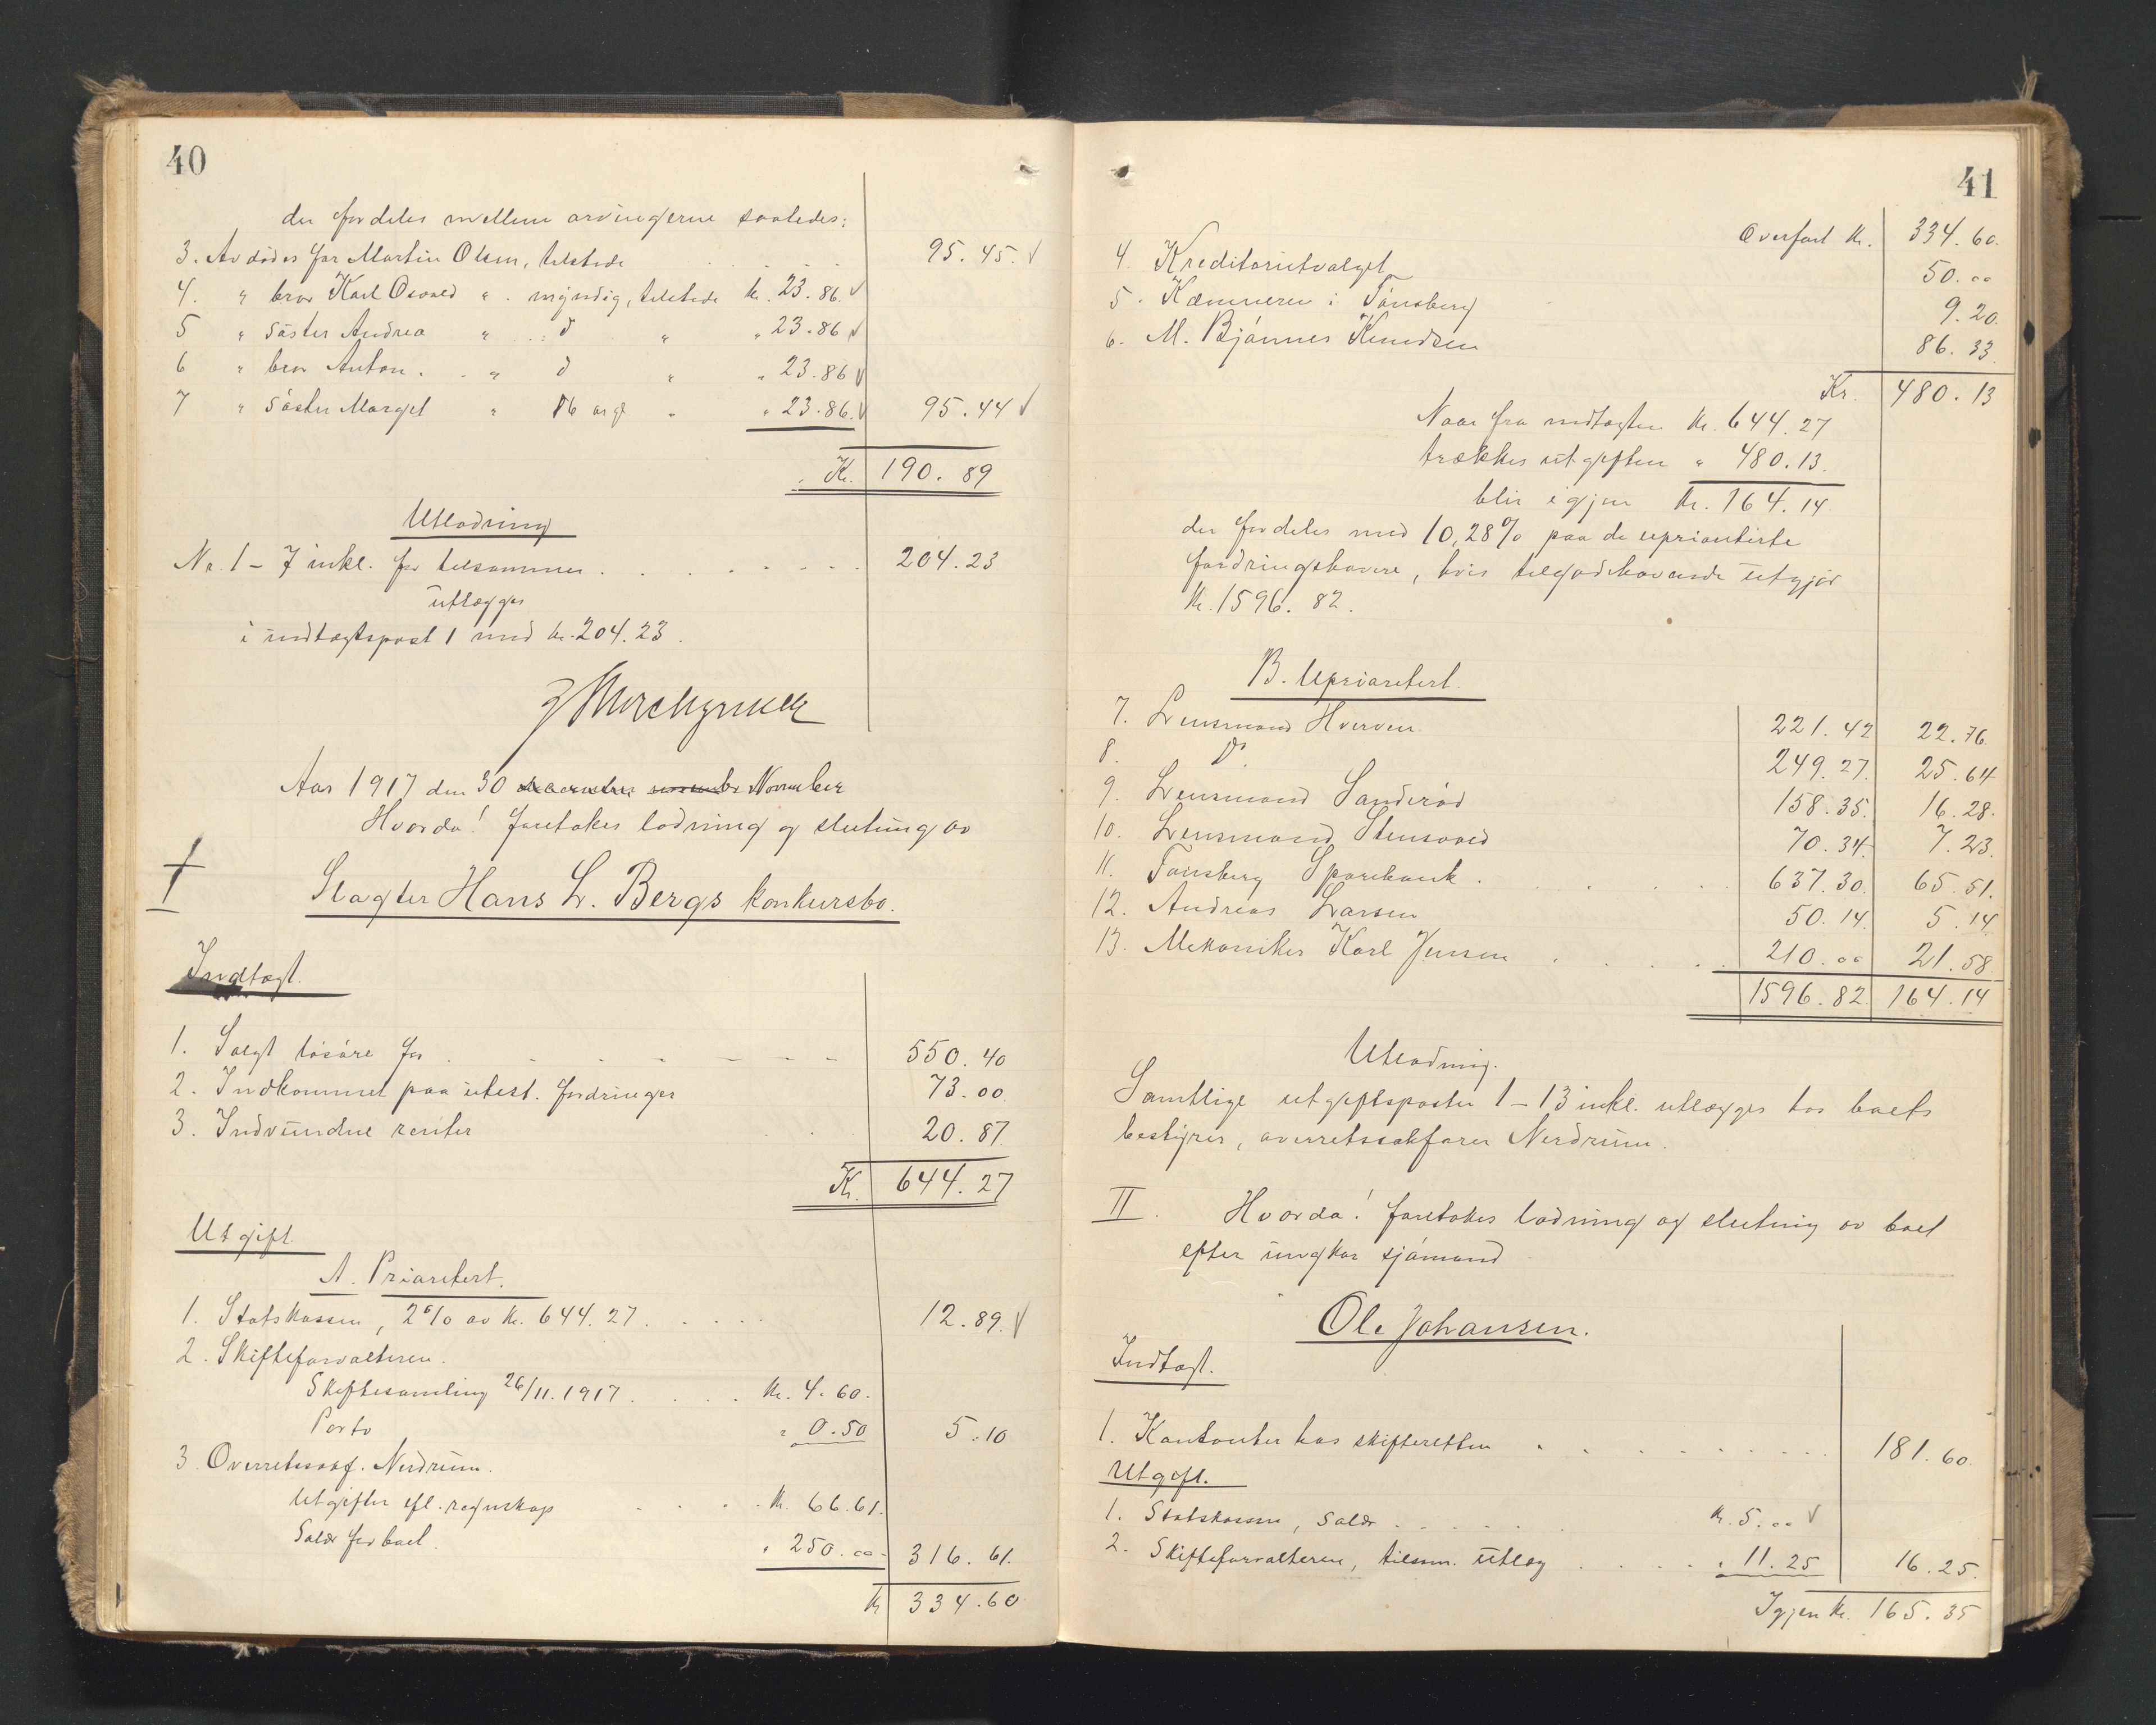 40
der fordeles mellem arvingerne saaledes:
3. Avdødes far Martin Olsen, tilstede 95.45.
4. " bror Karl Osvald " . myndig, tilstede kr. 23.86.
5 " søster Andrea " do " " 23.86
6 " bror Anton. " do " " 23.86
7 " søster Margit " 16 argl " " 23.86. 95.44
Kr. 190.89
Utlodning
No. 1 - 7 inkl. for tilsammen 204.23
utlægges
i indtægtspost 1 med kr. 204.23.
Aar 1917 den 30 November
Hvorda! foretokes lodning og slutning av
I
Slagter Hans L. Bergs konkursbo.
Indtægt.
1. Solgt løsøre for 550.40
2. Indkommet paa utest. fordringer 73.00
3. Indvundne renter 20.87
Kr. 644.27
Utgift
A. Prioritert.
1. Statskassen, 2% av kr. 644.27 12.89.
2. Skifteforvalteren.
Skiftesamling 26/11. 1917. kr. 4.60.
Porto " 0.50 5.10
3. Overretssakf. Nerdrum.
Utgifter efl. regnskap kr. 66.61.
Salær for boet. " 250.00 316.61.
kr 334.60
41
Overført kr. 334.60.
4. Kreditorutvalget 50.00
5. Kæmneren i Tønsberg 9.20.
6. M. Bjønnes Knudsen 86.33.
Kr. 480.13
Naar fra indtægten kr. 644.27
trækkes utgiften " 480.13.
blir igjen kr. 164.14
der fordeles med 10,28% paa de uprioriterte
fordringshavere, hvis tilgodehavende utgjør
kr. 1596.82.
B. Uprioritert.
7. Lensmand Hverven 221.42 22.76
8. Do. 249.27. 25.64
9. Lensmand Sanderød 158.35. 16.28.
10. Lensmand Stensvold 70.34. 7.23.
11. Tønsberg Sparebank. 637.30. 65.51.
12. Andreas Larsen 50.14. 5.14
13. Mekaniker Karl Jensen 210.00 21.58
1596.82. 164.14
Utlodning.
Samtlige utgiftsposter 1-13 inkl. utlægges hos boets
bestyrer, overretssakfører Nerdrum.
II. Hvorda! foretokes lodning og slutning av boet
efter ungkar sjømand
Ole Johansen.
Indtægt.
1. Kontanter hos skifteretten 181.60.
Utgift.
1. Statskassen, salær kr. 5.00
2. Skifteforvalteren, tilsm. utlæg " 11.25 16.25.
Igjen kr. 165.35